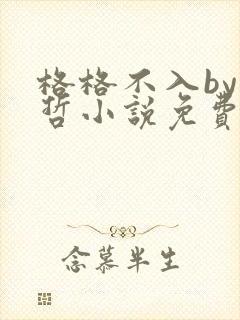 格格不入by
哲小説免費
念慕半生